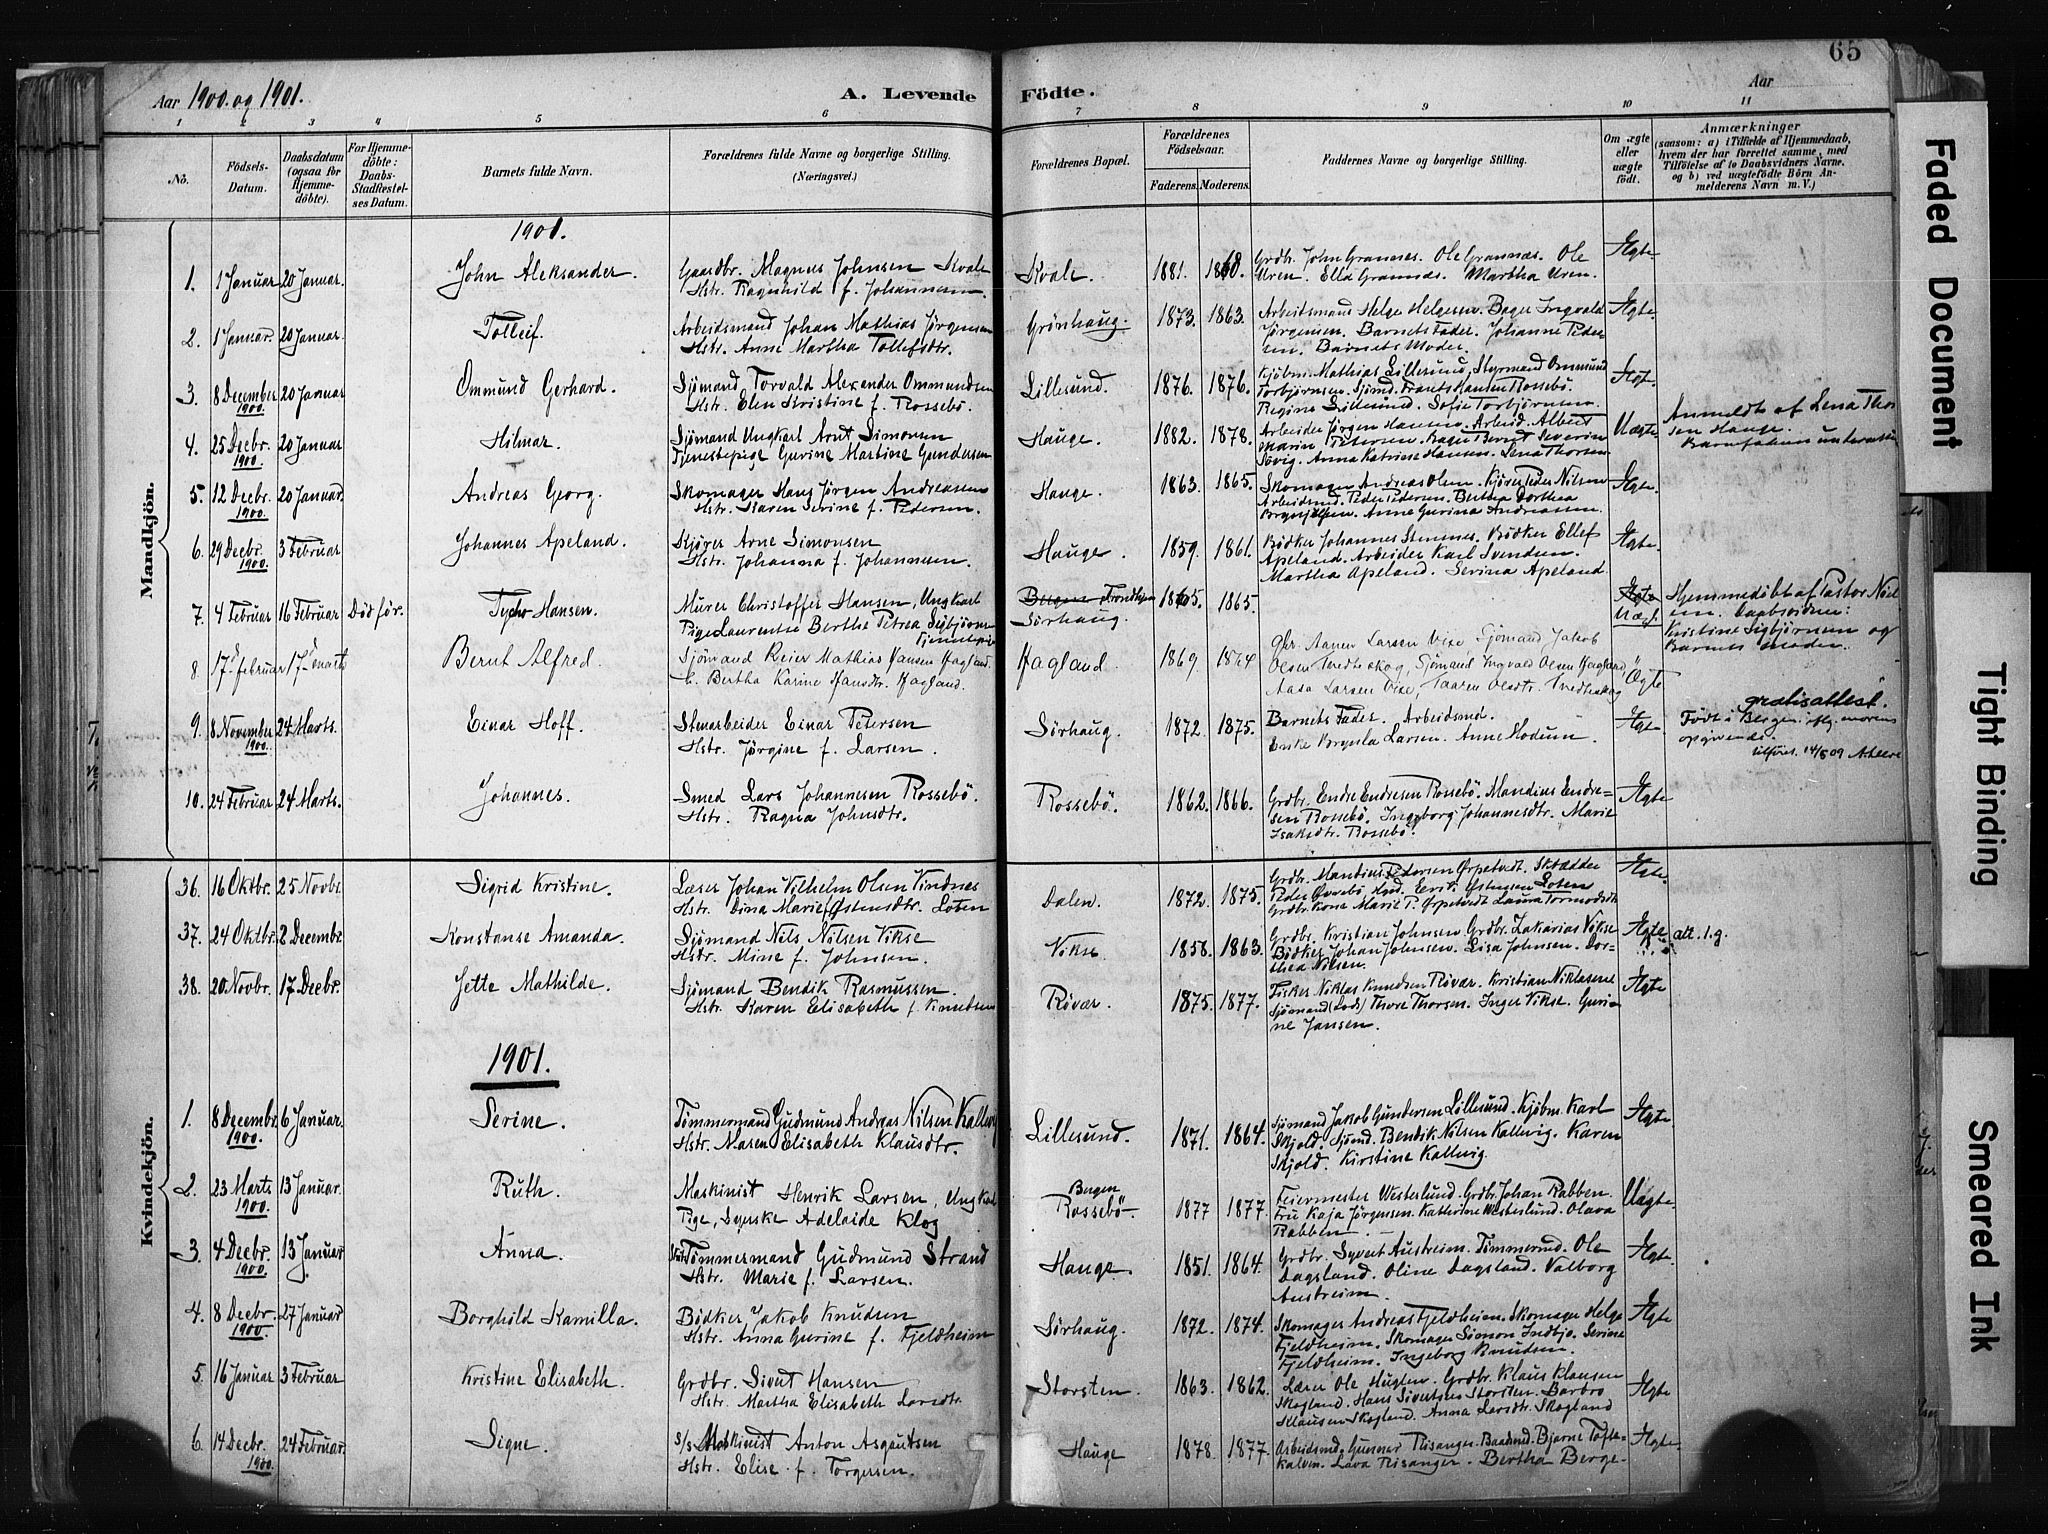 65
Aar 1900. og 1901.
A. Levende Födte.
Aar
1 2 3 4 5 6 7 8 9 10 11
No.
Födsels-
Datum.
Daabsdatum
(ogsaa for
Hjemme-
döbte).
For Hjemme-
döbte:
Daabs-
Stadfæstel-
ses Datum.
Barnets fulde Navn.
Forældrenes fulde Navne og borgerlige Stilling.
(Næringsvei.)
Forældrenes Bopæl.
Forældrenes
Födselsaar.
Faderens. Moderens.
Faddernes Navne og borgerlige Stilling.
Om ægte
eller
uægte
födt.
Anmærkninger
(saasom: a) i Tilfælde af Hjemmedaab,
hvem der har forrettet samme, med
Tilföielse af to Daabsvidners Navne.
og b) ved uægtefödte Börn An-
melderens Navn m. V.)
Mandkjön.
1901.
1. 1 Januar 20 Januar. John Aleksander. Gaardbr. Magnus Johnsen Kvale Kvale. 1881. 1860. Grdb. John Grannes. Ole Grannæs. Ole Ægte.
Hstr. Ragnhild f. Johannesen. Uren. Ella Grannæs. Martha Uren.
2. 1 Januar. 20 Januar. Tolleif. Arbeidsmand Johan Mathias Jørgensen Grönhaug. 1873. 1863. Arbeitsmand Helge Helgesen. Bager Ingvald Ægte.
Hstr. Anne Martha Tollefsdtr. Jørgensen. Barnets Fader. Johanne Peder-
sen. Barnets Moder.
3. 8 December 20 Januar Ommund Gerhard. Sjömand, Torvald Alexander Ommundsen Lillesund. 1876. 1876. Kjöbm. Mathias Lillesund, Styrmand Ommund Ægte.
1900. Hstr. Elen Kristine f. Rossebö. Torbjörnsen. Sjömd. Frants Hansen Rossebö.
Regine Lillesund. Sofie Torbjørnsen.
4. 25 Decbr. 20 Januar Hilmar. Sjömand Ungkarl Arnt Simonsen Hauge. 1882. 1878. Arbeider Jørgen Hansen. Arbeid. Albert Uægte. Anmeldt af Lena Thor
1900. Tjenestepige Gurine Martine Gundersen Marin Petersen. Bager Berndt Severin sen Hauge.
Sövig. Anna Katrine Hansen. Lena Thorsen
5. 12 Decbr. 20 Januar Andreas Georg. Skomager Hans Jörgen Andreassen Hauge. 1863. 1865. Skomager Andreas Olsen. Kjører Peder Nilsen Ægte.
1900. Hstr. Karen Serine f. Pedersen. Arbeidsmd. Peder Pedersen. Bertha Dorthea
Brynjelsen. Anne Gurina Andreassen.
6. 29 Decbr. 3 Februar Johannes Apeland. Kjörer Arne Simonsen Hauge. 1859. 1861. Bødker Johannes Stemnes. Bødker Ellef Ægte.
1900. Hstr. Johanna f. Johannesen. Apeland. Arbeider Karl Svendsen.
Martha Apeland. Serina Apeland.
7. 4 Februar 16 Februar Död för. Tycho Hansen. Murer Christoffer Hansen, Ungkarl Bergen Trondhjem 1865. 1865. Ægte Hjemmedöbt af Pastor Niel-
Pige Laurentse Berthe Petrea Sigbjörnsen Sörhaug. Uægt. sen. Daabsvidner:
Tjenestepige Kristine Sigbjörnsen og
Barnets Moder.
8 17de Februar 17de Marts Bernt Alfred. Sjömand Reier Mathias Hansen Hagland. Hagland. 1869. 1864 Gbr. Aanen Larsen Vixe, Sjömand Jakob Ægte
C. Bertha Karine Hansdtr. Hagland. Olsen Tvedteskog, Sjömand Ingvald Olsen Hagland,
Aasa Larsen Vixe, Taaren Olsdtr. Tvedteskog
9. 8 November 24 Marts. Einar Hoff. Stenarbeider Einar Petersen Sörhaug. 1872. 1875. Barnets Fader. Arbeidsmd. Ægte gratisattest.
1900. Hstr. Jörgine f. Larsen. Enke Brynla Larsen. Anne Modum. Födt i Bergen iflg. morens
opgivende.
utført 14/8 09
10. 24 Februar 24 Marts. Johannes. Smed Lars Johannesen Rossebö. Rossebö. 1862. 1866. Grdbr. Endre Endresen Rossebö. Mandius Endre- Ægte
Hstr. Ragna Johnsdtr. sen Rossebö. Ingeborg Johannesdtr. Marie
Isaksdtr. Rossebö.
Kvindekjön.
36. 16 Oktbr. 25 Novbr Sigrid Kristine. Læser Johan Vilhelm Olsen Vindnes Dalen. 1872. 1875. Grdbr. Mandius Pedersen Ørpetvedt. Skrædder Ægte.
Hstr. Dina Marie Østensdtr. Loten Peder Øvrebö. Erik Østensen Loten
Grdbr. Kone Marie P. Ørpetvedt Laura Tormodsdtr
37. 24 Oktbr. 2 Decembr. Konstanse Amanda. Sjömand Nels Nilsen Vikse Vikse. 1858. 1863. Grdbr. Kristian Johnsen Grdbr. Zakarias Vikse Ægte att. l.g.
Hstr. Mine f. Johnsen. Bödker Johan Johnsen. Lisa Johnsen. Dor-
thea Nilsen.
38. 20 Novbr. 17 Decbr. Jette Mathilde. Sjömand Bendik Rasmussen. Rövær. 1875. 1877. Fisker Niklas Knudsen Rövær. Kristian Niklasene Ægte
Hstr. Karen Elisabeth f. Knudsen Sjömand (Lods) Thore Thorsen. Inger Vikse. Guri-
ne Jansen.
1901.
1. 8 Decembr. 6 Januar. Serine. Tömmermand Gudmund Andreas Nilsen Kallevig Lillesund. 1871. 1864. Sjömand Jakob Gundersen Lillesund. Kjöbm. Karl Ægte
1900. Hstr. Maren Elisabeth Klausdtr. Skjold. Sjömd. Bendik Nilsen Kallevig. Karen
Skjold. Kirstine Kallevig.
2. 23 Marts 13 Januar. Ruth. Maskinist Henrik Larsen, Ungkarl Bergen 1877 1877. Feiermester Westerlund. Grdbr. Johan Rabben. Uægte
1900. Pige, Dgnske Adelaide Klog Rossebö Fru Kaja Jørgensen. Kathrine Westerlund. Olava
Rabben.
3. 4 Decbr. 13 Januar Anna. Tömmermand Gudmund Strand Hauge. 1851. 1864. Grdbr. Syvert Austreim. Tömmermd. Ole Ægte
1900. Hstr. Marie f. Larsen. Dagsland. Oline Dagsland. Valborg
Austreim.
4. 8 Decbr. 27 Januar Borghild Kamilla. Bödker Jakob Knudsen Sörhaug. 1872. 1874. Skomager Andreas Fjeldheim. Skomager Helge Ægte
1900. Hstr. Anna Gurine f. Fjeldheim Fjeldheim. Skomager Simon Indbjo. Serine
Fjeldheim. Ingeborg Knudsen.
5. 16 Januar 3 Februar Kristine Elisabeth. Grdbr. Sivert Hansen Storsten. 1863. 1862. Lærer Ole Huglen. Grdbr. Klaus Klausen Ægte
Hstr. Martha Elisabeth Larsdtr. Skogland. Hans Sivertsen Storsten. Barbro
Klausen Skogland. Anna Larsdtr. Skogland
6. 14 Decbr. 24 Februar. Signe. s/s Maskinist Anton Asgautsen Hauge 1878. 1877. Arbeidsmd. Gunnar Risanger. Baadsmd. Bjarne Tofte- Ægte
1900. Hstr. Elise f. Torgersen. kalven. Lava Risanger. Bertha Berge.
Faded Document
Tight Binding
Smeared Ink